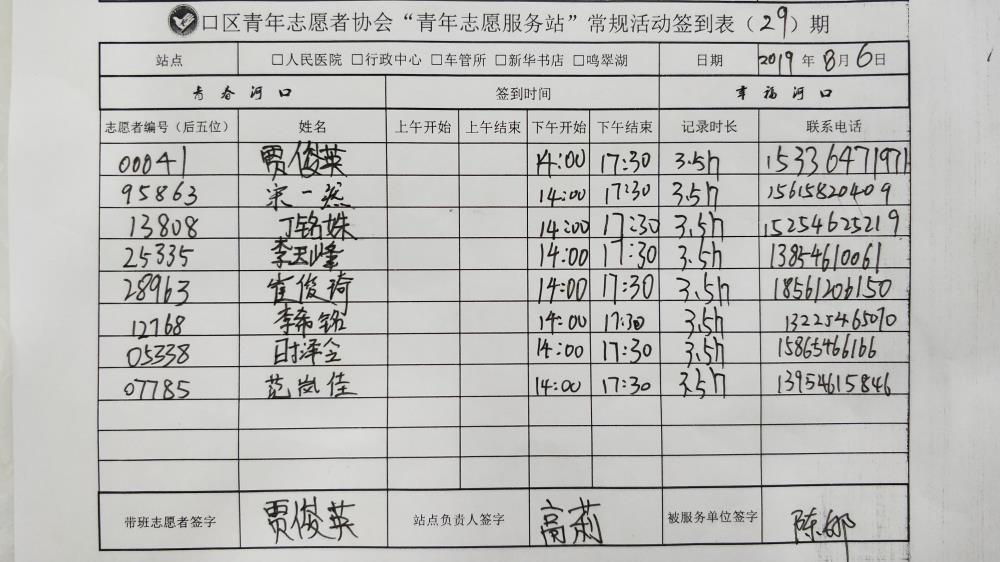 口区青年志愿者协会“青年志愿服务站”常规活动签到表（29）期
站点 □人民医院 □行政中心 □车管所 □新华书店 □鸣翠湖 日期 2019年8月6日
青春河口 签到时间 幸福河口
志愿者编号（后五位） 姓名 上午开始 上午结束 下午开始 下午结束 记录时长 联系电话
00041 贾俊英 14:00 17:30 3.5h 15336471971
95863 宋一燃 14:00 17:30 3.5h 15615820409
13808 丁铭姝 14:00 17:30 3.5h 15254625219
25335 李天峰 14:00 17:30 3.5h 13854610061
28963 崔俊琦 14:00 17:30 3.5h 18561206150
12768 李希铭 14:00 17:30 3.5h 13225465070
05338 时泽仝 14:00 17:30 3.5h 15865466166
07785 范岚佳 14:00 17:30 3.5h 13954615846
带班志愿者签字 贾俊英 站点负责人签字 高莉 被服务单位签字 陈娜